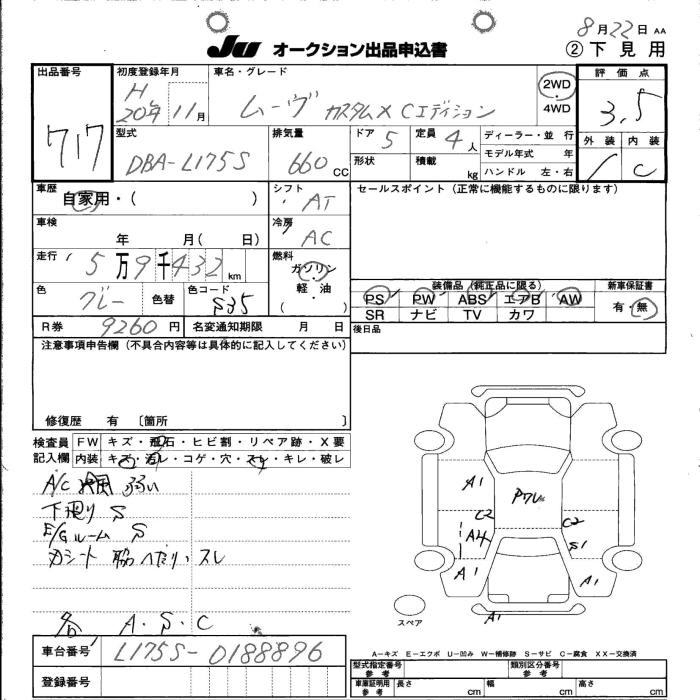 8月22日 AA
JU オークション出品申込書
②下見用
出品番号
717
初度登録年月
H
20年 11月
車名・グレード
ムーヴ カスタムX Cエディション
2WD
・
4WD
評価点
3.5
外装 内装
C
型式
DBA-L175S
排気量
660 CC
ドア 5
定員 4人
形状
積載 kg
ディーラー・並 行
モデル年式 年
ハンドル 左・右
車歴
自家用・( )
シフト
AT
セールスポイント(正常に機能するものに限ります)
車検
年 月( 日)
冷房
AC
走行
5万9千432km
燃料
ガソリン
・
軽・油
( )
色
グレー
色替
色コード
S35
装備品(純正品に限る)
PS PW ABS エアB AW
SR ナビ TV カワ
新車保証書
有・無
R券 9260円
名変通知期限 月 日
後日品
注意事項申告欄(不具合内容等は具体的に記入してください)
修復歴 有 〔箇所 〕
検査員
記入欄
FW キズ・飛石・ヒビ割・リペア跡・X要
内装 キズ・汚レ・コゲ・穴・スレ・キレ・破レ
A/C 弱い
下廻り S
E/Gルーム S
シート ヘたり・スレ
各 A・S・C
A1
Pフレ
C2
A4
C2
S1
A1
A1
A1
スペア
車台番号 L175S-0188896
登録番号
A-キズ E-エクボ U-凹み W-補修跡 S-サビ C-腐食 XX-交換済
型式指定番号
参考
類別区分番号
参考
車庫証明用
参考
長さ cm
幅 cm
高さ cm